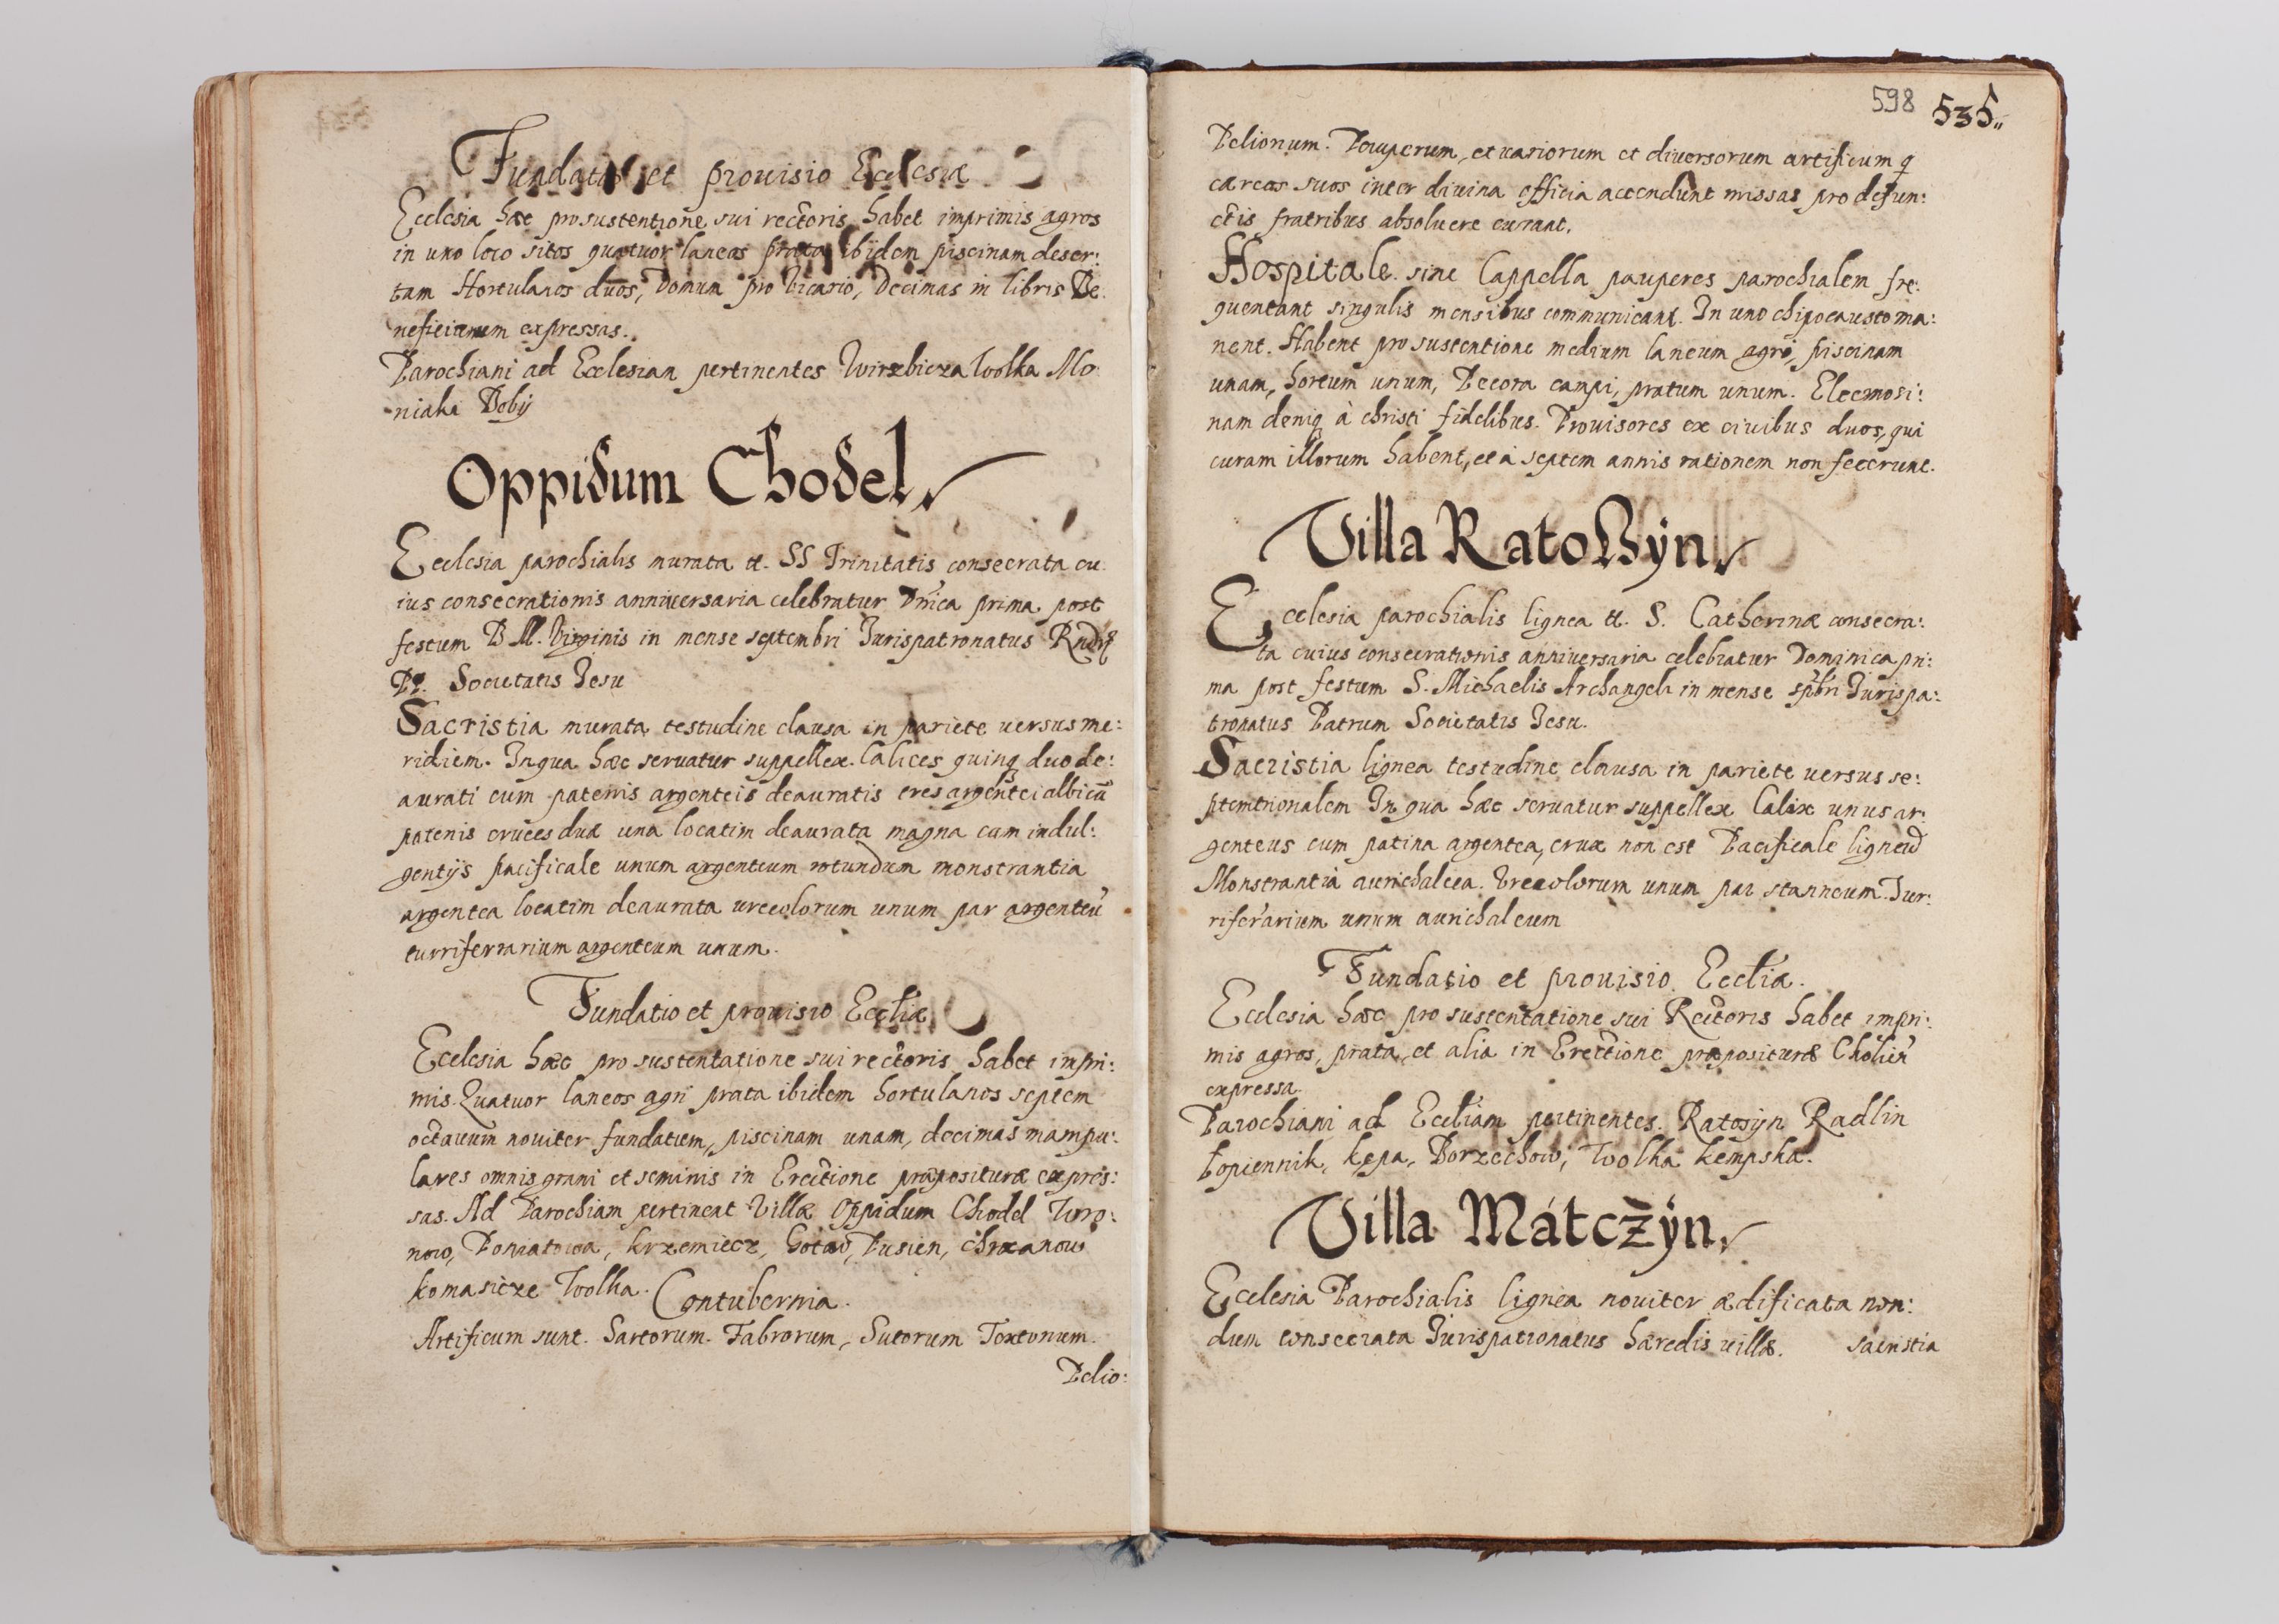 Fundatio et prouisio Ecclesiæ
Ecclesia hæc pro sustentione sui rectoris habet imprimis agros
in uno loco sitos quatuor laneos prata ibidem piscinam deser:
tam Hortulanos duos, Domum pro Vicario, Decimas in libris Be
neficiorum expressas.
Parochiani ad Ecclesiam pertinentes Wirzbicza Wolka Mo
niaki Boby
Oppidum Chodel
Ecclesia parochialis murata tt. SS Trinitatis consecrata cu
ius consecrationis anniuersaria celebratur Dnica prima post
festum B M. Virginis in mense septembri Jurispatronatus
PP. Societatis Jesu
Sacristia murata testudine clausa in pariete uersus me:
ridiem. In qua hæc seruatur suppellex. Calices quinq duo de:
aurati cum patenis argenteis deauratis tres argentei albi cū
patenis cruces duæ una locatim deaurata magna cum indul:
gentijs pacificale unum argenteum rotundum monstrantia
argentea locatim deaurata urceolorum unum par argenteū
turriferrarium argenteum unum.
Fundatio et prouisio Eccliæ
Ecclesia hæc pro sustentatione sui rectoris habet impri:
mis. Quatuor laneos agri prata ibidem hortulanos septem
octauum nouiter fundatum, piscinam unam, decimas manipu:
lares omnis grani et seminis in Erectione præposituræ expres:
sas. Ad Parochiam pertinent Villæ Oppidum Chodel
now, Poniatowa, krzemiecz, Pusien, chrzanow
komasicze Wolka. Contubernia.
Artificum sunt. Sartorum. Fabrorum, Sutorum Textorum.
Pelio:
598 535
Pelionum. Pauperum, et uariorum et diuersorum artificum q
cereos suos inter diuina officia accendunt missas pro defun:
ctis fratribus absoluere curant.
Hospitale. sine Cappella pauperes parochialem fre:
quentant singulis mensibus communicant. In uno chipocausto ma:
nent. Habent pro sustentione medium laneum agri, piscinam
unam, hortum unum, campi, pratum unum. Eleemosi:
nam deniq à christi fidelibus. Prouisores ex ciuibus duos, qui
curam illorum habent, et à septem annis rationem non fecerunt.
Villa Ratoszÿn
Ecclesia parochialis lignea tt. S. Catherinæ consecra:
ta cuius consecrationis anniuersaria celebratur Dominica pri:
ma post festum S. Michaelis Archangeli in mense Jurispa:
tronatus Patrum Societatis Jesu.
Sacristia lignea testudine clausa in pariete uersus se:
ptemtrionalem In qua hæc seruatur suppellex Calix unus ar:
genteus cum patina argentea, crux non est Pacificale ligneū
Monstrantia aurichalcea. Vrceolorum unum par stanneum. Tur:
riferarium unum aurichalcum
Fundatio et prouisio Eccliæ.
Ecclesia hæc pro sustentatione sui Rectoris habet impri:
mis agros, prata, et alia in Erectione præpositurę
expressa.
Parochiani ad Eccliam pertinentes. Ratosyn Radlin
Łopiennik, kępa, Borzechow, Wolka kempska.
Villa Mátczÿn
Ecclesia Parochialis lignea nouiter ædificata non:
dum consecrata Jurispatronatus hæredis uillæ. sacristia